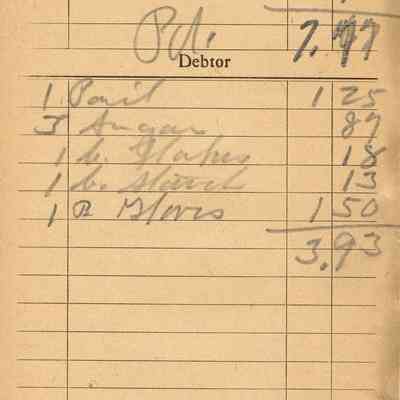 Pd.
Debtor
1 Pail 1 25
3 Sugar 87
1 c. Flakes 18
1 c. Starch 13
1 Gloves 1 50
3.93